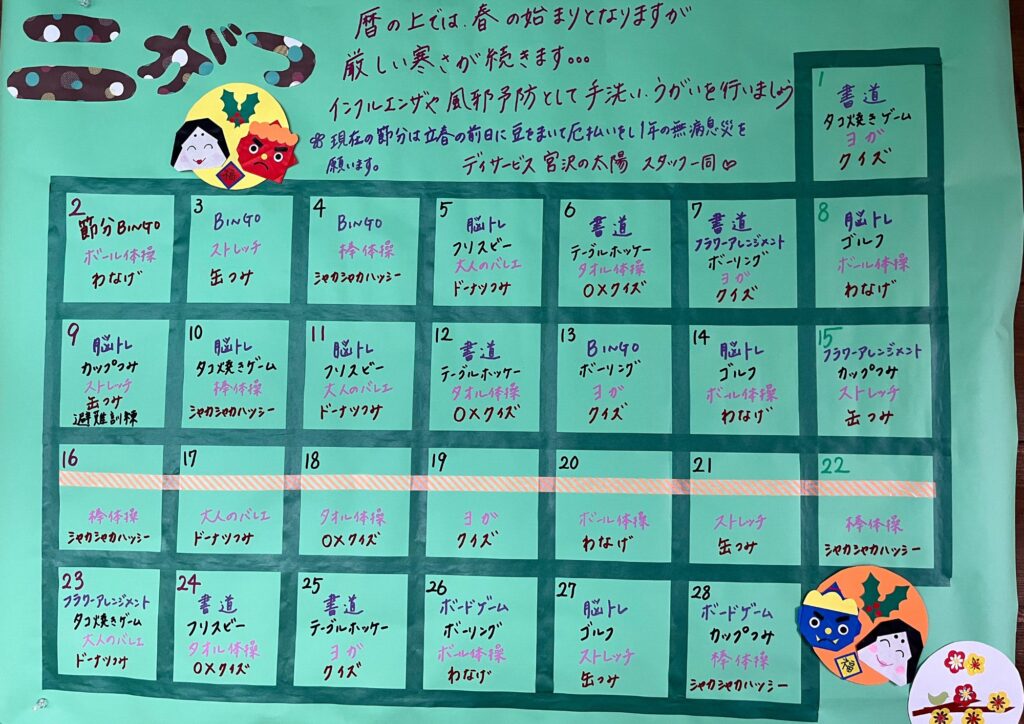 にがつ
暦の上では、春の始まりとなりますが
厳しい寒さが続きます...
インフルエンザや風邪予防として手洗い、うがいを行いましょう
現在の節分は立春の前日に豆をまいて厄払いをし1年の無病息災を
願います。 デイサービス宮沢の太陽 スタッフ一同♡
福
1
書道
タコ焼きゲーム
ヨガ
クイズ
2
節分BINGO
ボール体操
わなげ
3
BINGO
ストレッチ
缶つみ
4
BINGO
棒体操
シャカシャカハッシー
5
脳トレ
フリスビー
大人のバレエ
ドーナツつみ
6
書道
テーブルホッケー
タオル体操
〇×クイズ
7
書道
フラワーアレンジメント
ボーリング
ヨガ
クイズ
8
脳トレ
ゴルフ
ボール体操
わなげ
9
脳トレ
カップつみ
ストレッチ
缶つみ
避難訓練
10
脳トレ
タコ焼きゲーム
棒体操
シャカシャカハッシー
11
脳トレ
フリスビー
大人のバレエ
ドーナツつみ
12
書道
テーブルホッケー
タオル体操
〇×クイズ
13
BINGO
ボーリング
ヨガ
クイズ
14
脳トレ
ゴルフ
ボール体操
わなげ
15
フラワーアレンジメント
カップつみ
ストレッチ
缶つみ
16
棒体操
シャカシャカハッシー
17
大人のバレエ
ドーナツつみ
18
タオル体操
〇×クイズ
19
ヨガ
クイズ
20
ボール体操
わなげ
21
ストレッチ
缶つみ
22
棒体操
シャカシャカハッシー
23
フラワーアレンジメント
タコ焼きゲーム
大人のバレエ
ドーナツつみ
24
書道
フリスビー
タオル体操
〇×クイズ
25
書道
テーブルホッケー
ヨガ
クイズ
26
ボードゲーム
ボーリング
ボール体操
わなげ
27
脳トレ
ゴルフ
ストレッチ
缶つみ
28
ボードゲーム
カップつみ
棒体操
シャカシャカハッシー
福